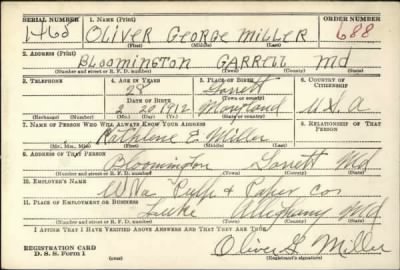 SERIAL NUMBER 1. NAME (Print) ORDER NUMBER
OLIVER GEORGE MILLER 688
(First) (Middle) (Last)
2. ADDRESS (Print)
BLOOMINGTON GARRETT Md
(Number and street or R. F. D. number) (Town) (County) (State)
3. TELEPHONE 4. AGE IN YEARS 5. PLACE OF BIRTH 6. COUNTRY OF CITIZENSHIP
28 Garrett
(Town or county)
DATE OF BIRTH
2 20 1912 Maryland U.S.A
(Exchange) (Number) (Mo.) (Day) (Yr.) (State or country)
7. NAME OF PERSON WHO WILL ALWAYS KNOW YOUR ADDRESS 8. RELATIONSHIP OF THAT PERSON
Kathlene E. Miller
(Mr., Mrs., Miss) (First) (Middle) (Last)
9. ADDRESS OF THAT PERSON
Bloomington Garrett Md
(Number and street or R. F. D. number) (Town) (County) (State)
10. EMPLOYER'S NAME
W Va Pulp & Paper Co
11. PLACE OF EMPLOYMENT OR BUSINESS
Luke Alleghany Md
(Number and street or R. F. D. number) (Town) (County) (State)
I AFFIRM THAT I HAVE VERIFIED ABOVE ANSWERS AND THAT THEY ARE TRUE.
REGISTRATION CARD
D. S. S. Form 1
Oliver G Miller
(Registrant's signature)